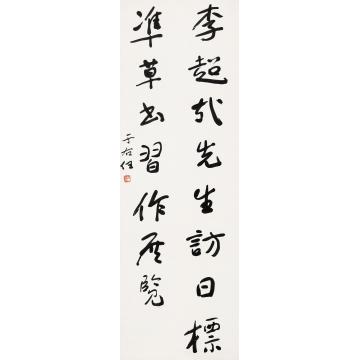 李超哉先生訪日標
準草書習作展覽
于右任